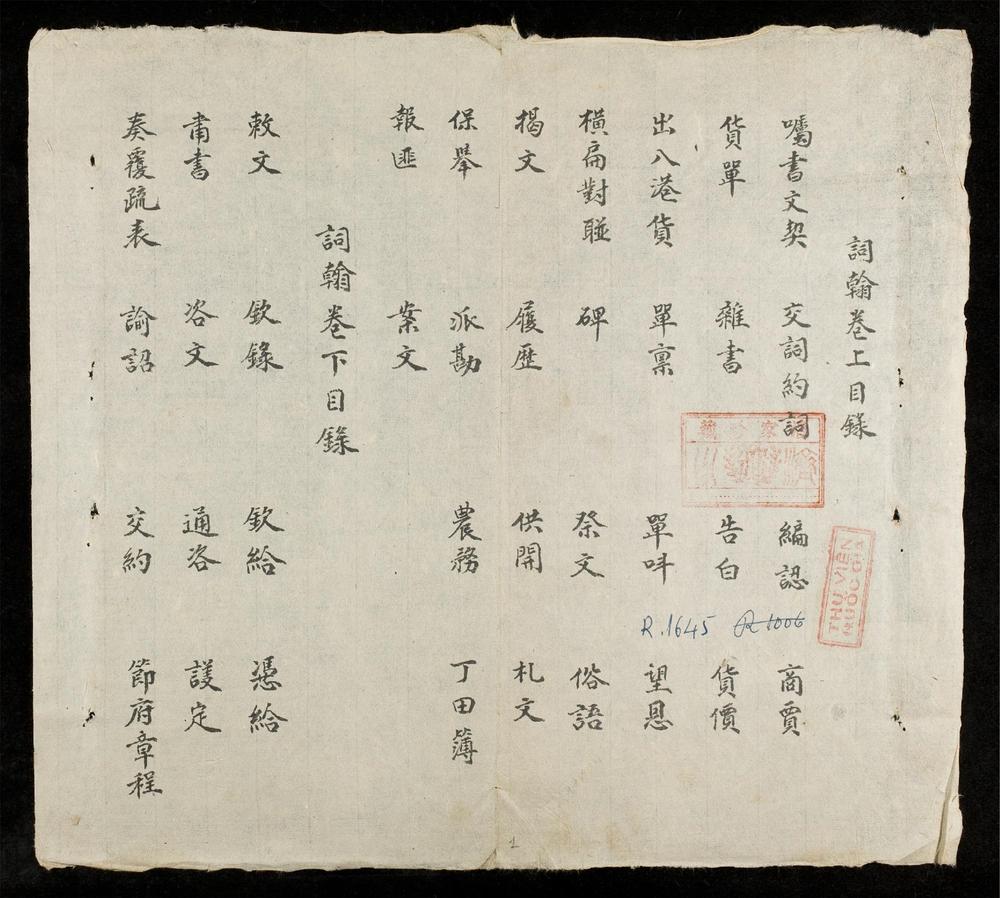 詞翰卷上目錄
囑書文契 交詞約詞 編認 商賈
貨單 雜書 告白 貨價
出入港貨 單稟 單呌 望恩
橫扁對聯 碑 祭文 俗語
揭文 履歷 供開 札文
保舉 派勘 農務 丁田簿
報匪 案文
詞翰卷下目錄
敕文 欽錄 欽給 憑給
肅書 咨文 通咨 議定
奏覆疏表 諭詔 交約 節府章程
R.1645 R 1006
THƯ VIỆN
QUỐC GIA
1